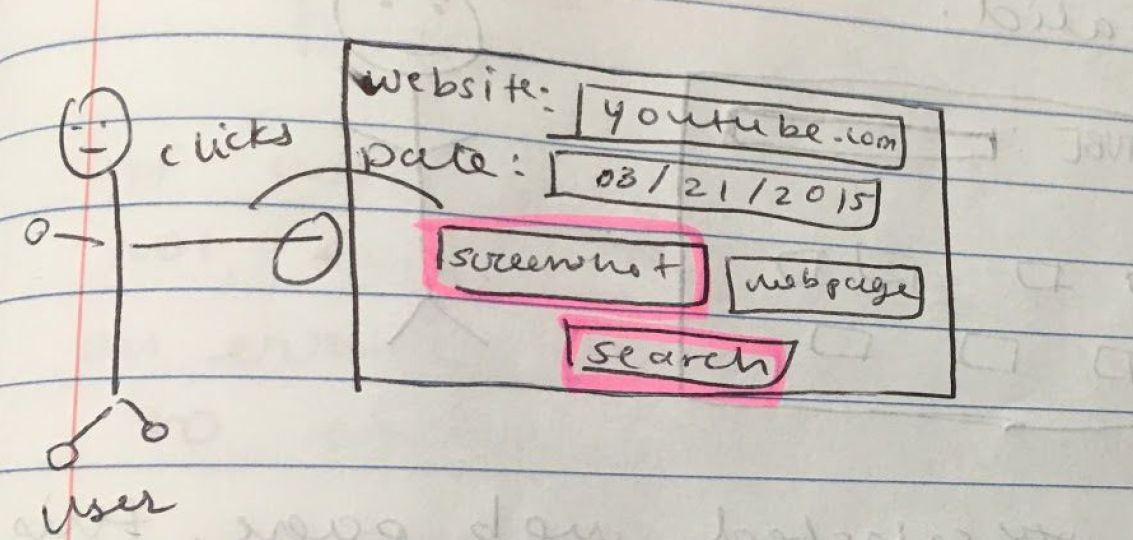 website: youtube.com
clicks
Date: 03/21/2015
screenshot webpage
search
user